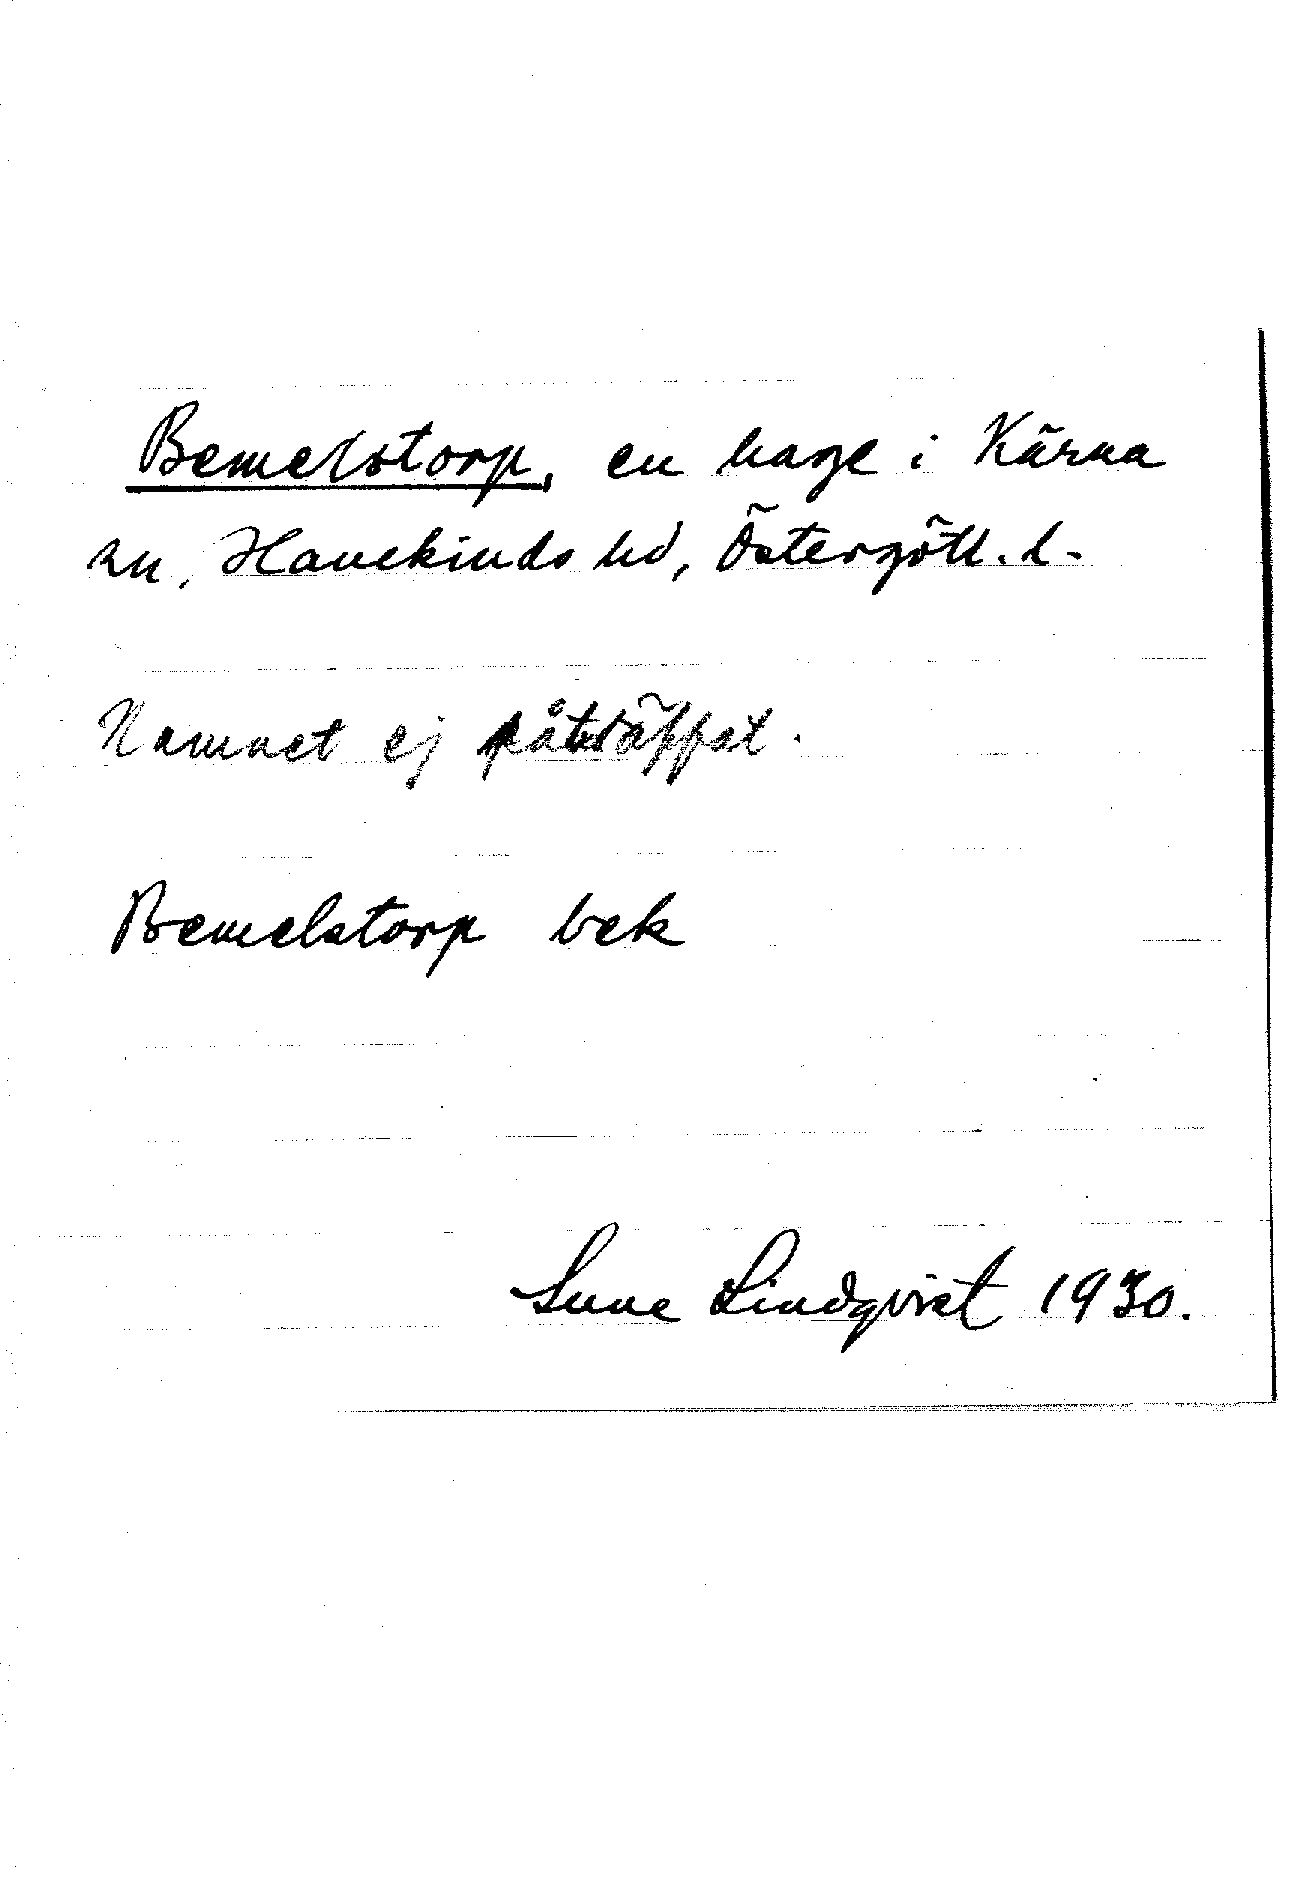 Bemelstorp, en hage i Kärna
sn, Hanekinds hd, Östergötl. l.
Namnet ej påträffat.
Bemelstorp bek
Sune Lindqvist 1930.